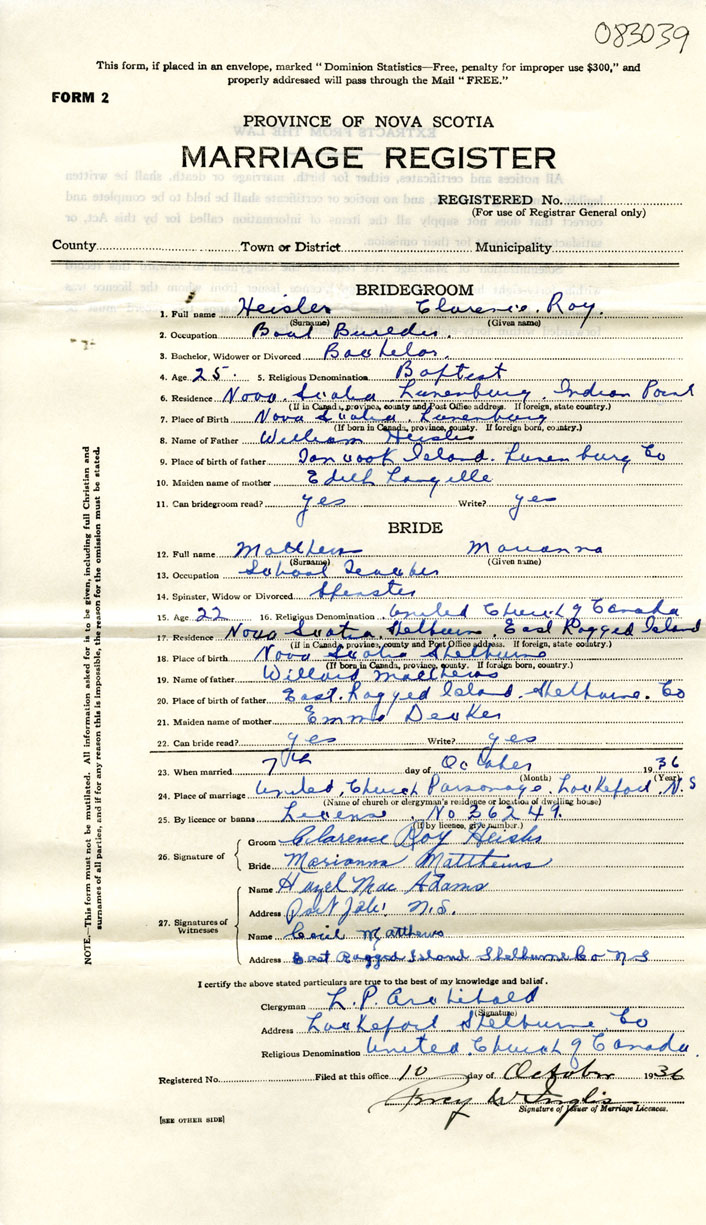 083039
This form, if placed in an envelope, marked "Dominion Statistics—Free, penalty for improper use $300," and
properly addressed will pass through the Mail "FREE."
FORM 2
PROVINCE OF NOVA SCOTIA
MARRIAGE REGISTER
REGISTERED No.
(For use of Registrar General only)
County Town or District Municipality
BRIDEGROOM
1. Full name Heisler Clarence Roy.
(Surname) (Given name)
2. Occupation Boat Builder.
3. Bachelor, Widower or Divorced Bachelor.
4. Age 25. 5. Religious Denomination Baptist
6. Residence Nova Scotia Lunenburg, Indian Point
(If in Canada, province, county and Post Office address. If foreign, state country.)
7. Place of Birth Nova Scotia, Lunenburg
(If born in Canada, province, county. If foreign born, country.)
8. Name of Father William Heisler
9. Place of birth of father Tancook Island. Lunenburg Co
10. Maiden name of mother Edith Langille
11. Can bridegroom read? yes Write? yes
BRIDE
12. Full name Matthews Marianna
(Surname) (Given name)
13. Occupation School Teacher
14. Spinster, Widow or Divorced Spinster
15. Age 22 16. Religious Denomination United Church of Canada
17. Residence Nova Scotia, Shelburne, East Ragged Island
(If in Canada, province, county and Post Office address. If foreign, state country.)
18. Place of birth Nova Scotia Shelburne
(If born in Canada, province, county. If foreign born, country.)
19. Name of father Willard Matthews
20. Place of birth of father East Ragged Island, Shelburne. Co
21. Maiden name of mother Emma
22. Can bride read? yes Write? yes
23. When married 7th day of October 1936
(Month) (Year)
24. Place of marriage United Church Parsonage, Lockeport, N.S
(Name of church or clergyman's residence or location of dwelling house)
25. By licence or banns License. No 36249.
(If by licence, give number.)
26. Signature of Groom Clarence Roy Heisler
Bride Marianna Matthews
27. Signatures of Witnesses
Name Hazel Mac Adams
Address N.S.
Name Cecil Matthews
Address East Ragged Island Shelburne Co N S
I certify the above stated particulars are true to the best of my knowledge and belief.
Clergyman L. P. Archibald
(Signature)
Address Lockeport Shelburne Co
Religious Denomination United Church of Canada.
Registered No. Filed at this office 10 day of October 1936
Signature of Issuer of Marriage Licences.
[SEE OTHER SIDE]
NOTE.—This form must not be mutilated. All information asked for is to be given, including full Christian and
surnames of all parties, and if for any reason this is impossible, the reason for the omission must be stated.